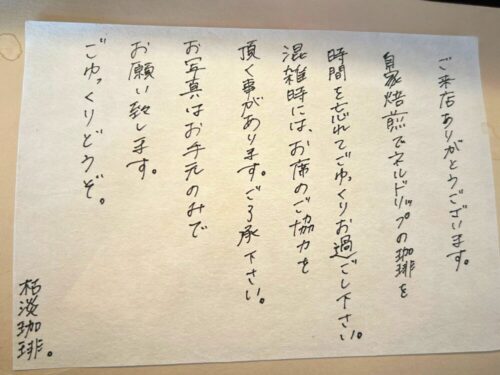 ご来店ありがとうございます。
自家焙煎でネルドリップの珈琲を
時間を忘れてごゆっくりお過ごし下さい。
混雑時には、お席のご協力を
頂く事があります。ご了承下さい。
お写真はお手元のみで
お願い致します。
ごゆっくりどうぞ。
枯淡珈琲。